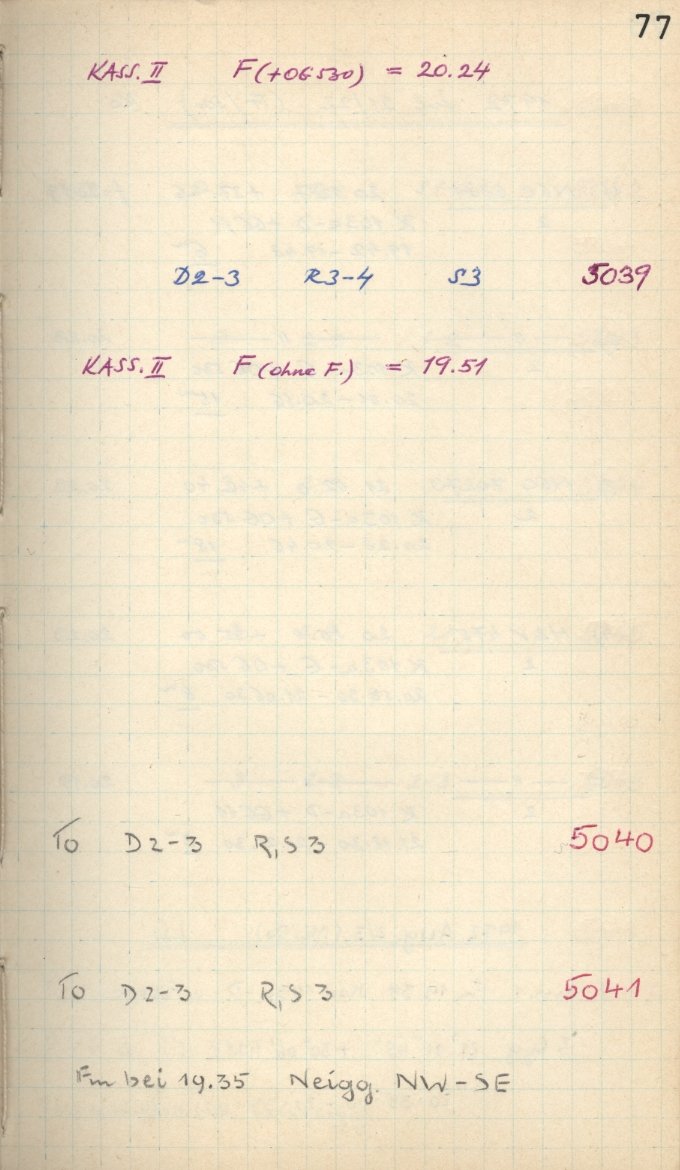 77
KASS. II F (+OG 530) = 20.24
D2-3 R3-4 S3 5039
KASS. II F (ohne F.) = 19.51
To D2-3 R,S3 5040
To D2-3 R,S3 5041
Fm bei 19.35 Neigg. NW-SE